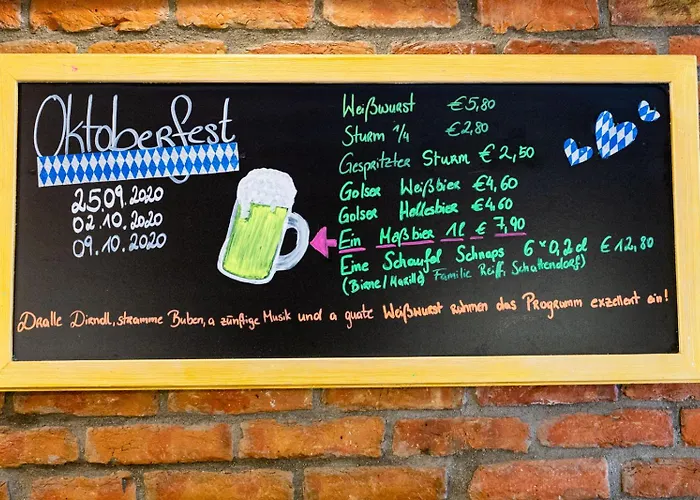 Oktoberfest
25.09.2020
02.10.2020
09.10.2020
Weißwurst €5,80
Sturm 1/4 €2,80
Gespritzter Sturm €2,50
Golser Weißbier €4,60
Golser Hellesbier €4,60
Ein Maßbier 1l € 7,90
Eine Schaufel Schnaps 6×0,2cl €12,80
(Birne/Marille, Familie Reiff, Schattendorf)
Dralle Dirndl, stramme Buben, a zünftige Musik und a guate Weißwurst rahmen das Programm exzellent ein!